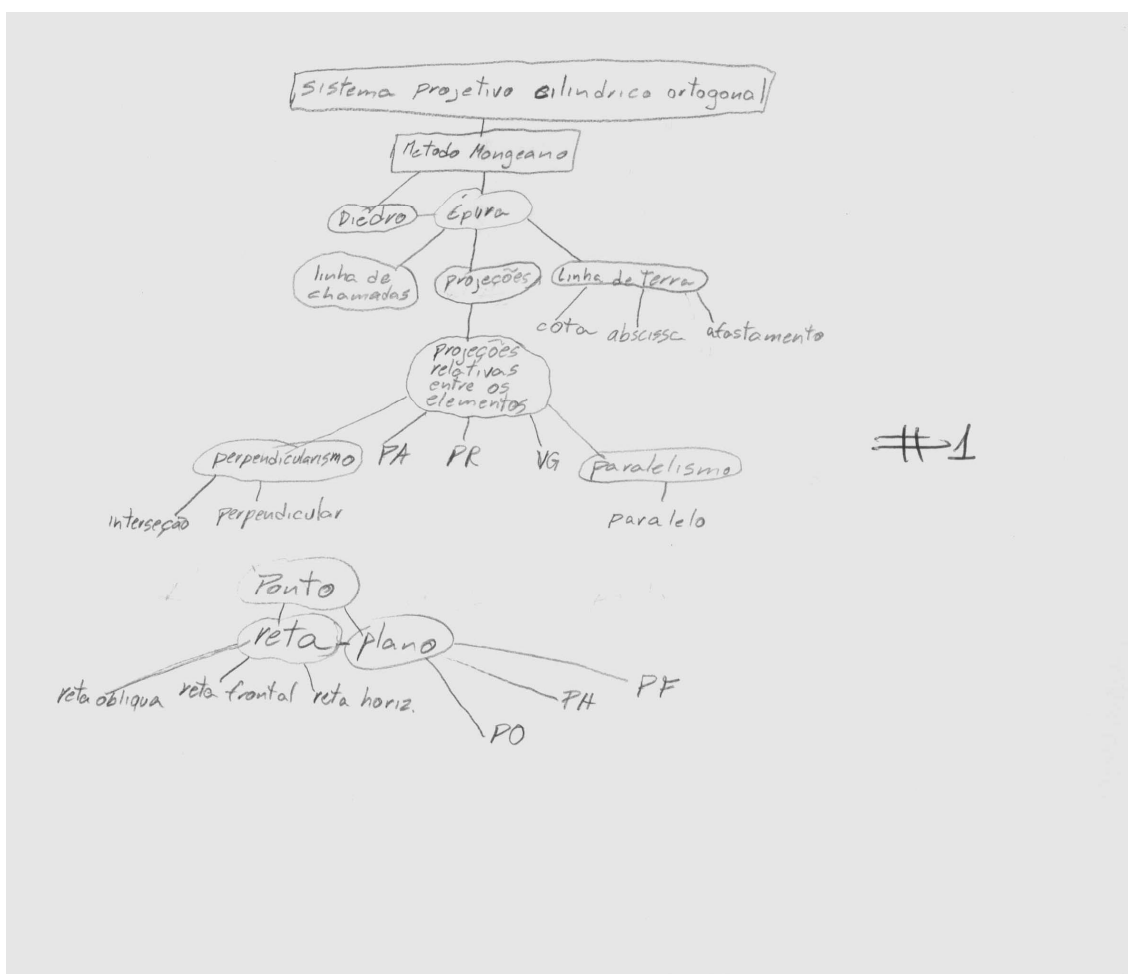 sistema projetivo cilindrico ortogonal
Metodo Mongeano
Diédro Épura
linha de
chamadas
projeções
linha de Terra
cota abscissa afastamento
projeções
relativas
entre os
elementos
perpendicularismo PA PR VG paralelismo
interseção perpendicular paralelo
#1
Ponto
reta plano
reta obliqua reta frontal reta horiz. PH PF
PO